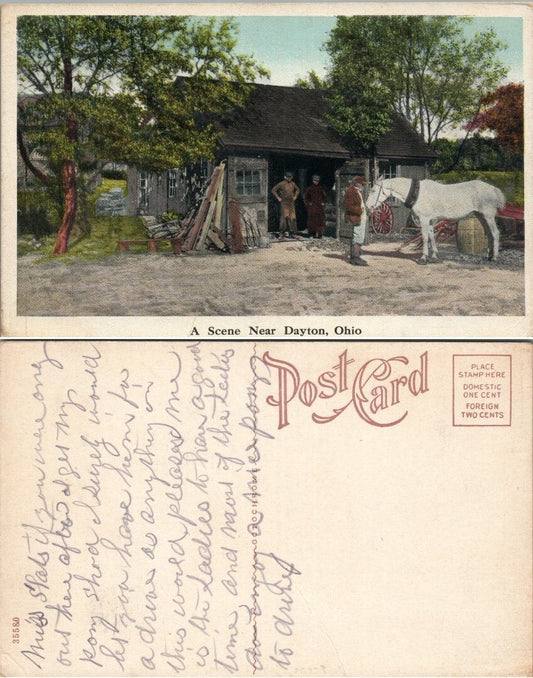 A Scene Near Dayton, Ohio
Post Card
PLACE
STAMP HERE
DOMESTIC
ONE CENT
FOREIGN
TWO CENTS
35580
Miss Skats if you were ony
out here after I get my
pony shod I surely would
let you have him for
a drive as anything in
this world pleases me
is the ladies to have a good
time and most of the ladies
to drive